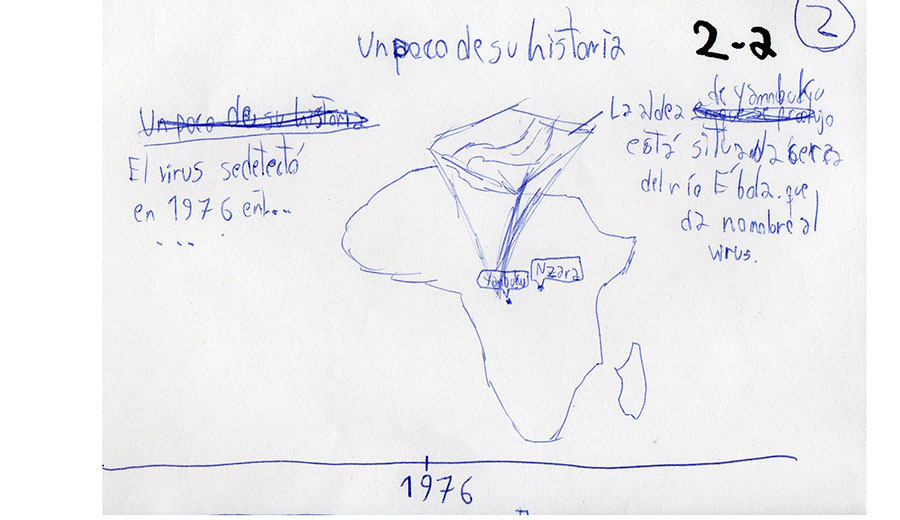 Un poco de su historia
2-2
2
Un poco de su historia
El virus se detectó
en 1976 en...
....
La aldea de Yambuku
está situada cerca
del río Ébola. que
da nombre al
virus.
Yambuku
Nzara
1976